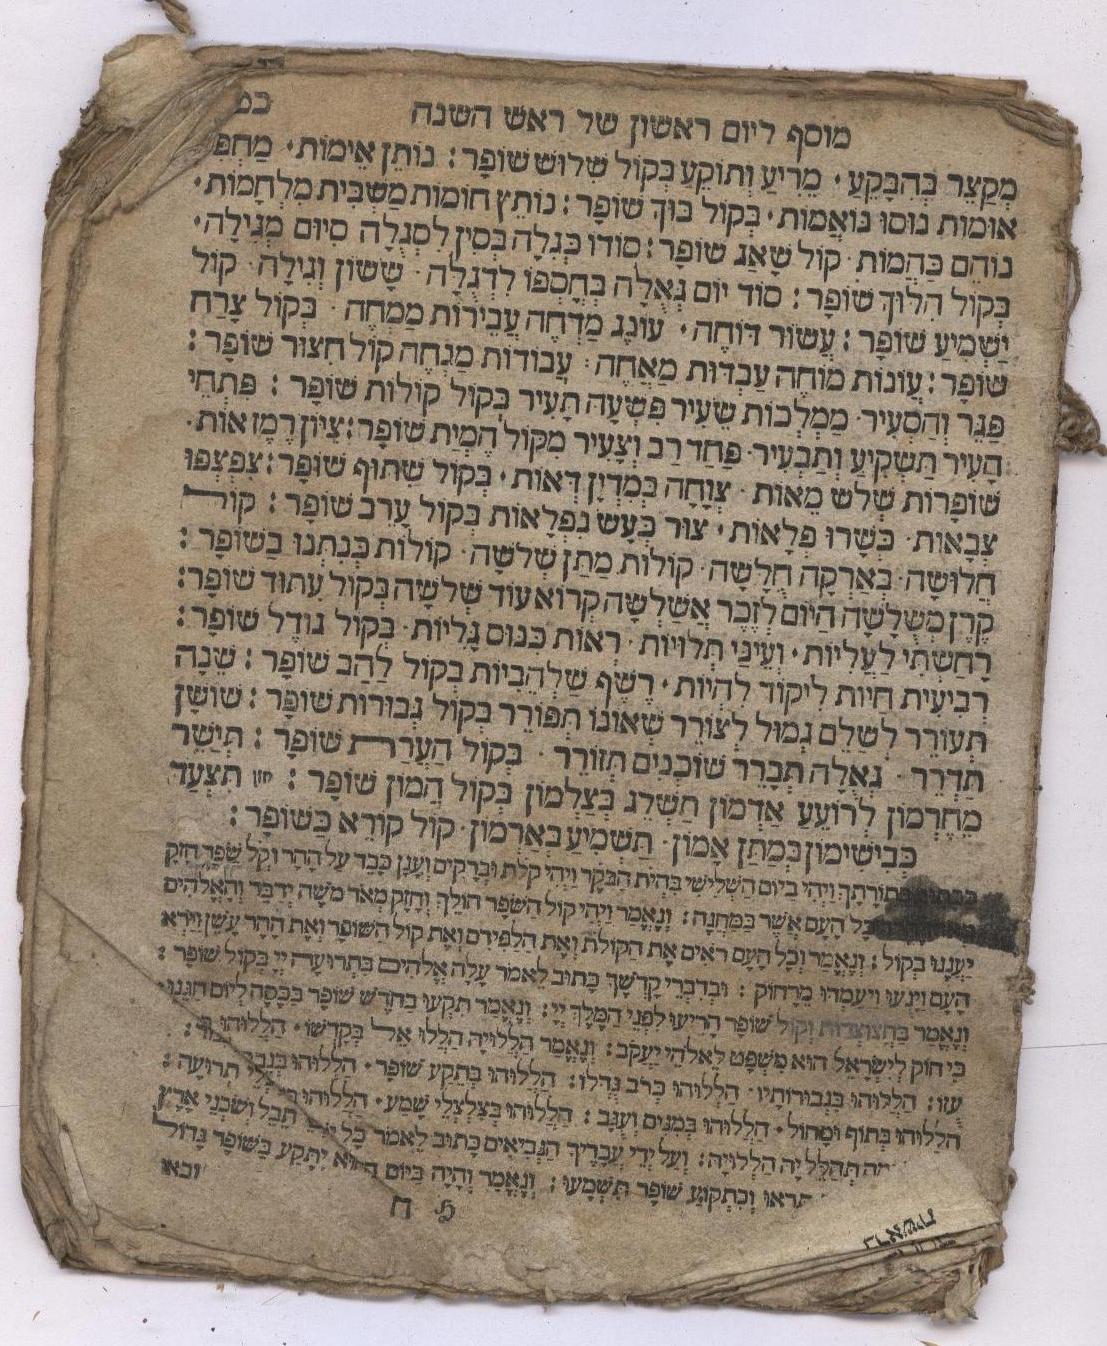 מוסף ליום ראשון של ראש השנה
מְקַצֵּר בְּהִבָּקֵעַ · מֵרִיעַ וְתוֹקֵעַ בְּקוֹל שִׁלּוּשׁ שׁוֹפָר : נוֹתֵן אֵימוֹת ·
אוּמוֹת נוּסוּ נוֹאֲמוֹת · בְּקוֹל בּוּךְ שׁוֹפָר : נוֹתֵץ חוֹמוֹת מַשְׁבִּית מִלְחָמוֹת ·
נוֹהֵם כַּהֲמוֹת · קוֹל שָׁאַג שׁוֹפָר : סוֹדוֹ כְּגָלָה בְּסִין לִסְגֻלָּה סִיּוּם מְגִילָה ·
בְּקוֹל הִלּוּךְ שׁוֹפָר : סוֹד יוֹם גְּאֻלָּה בְּחָסְפּוֹ לִדְגֻלָּה · שָׂשׂוֹן וְגִילָה · קוֹל
יַשְׁמִיעַ שׁוֹפָר : עֲשׂוֹר דּוֹחֶה · עוֹנֶג מַדְחֶה עֲבֵירוֹת מַמְחֶה · בְּקוֹל צָרַח
שׁוֹפָר : עֲוֹנוֹת מוֹחֶה עַבְדוּת מַאֲחֶה · עֲבוֹדוֹת מַנְחֶה קוֹל חִצּוּר שׁוֹפָר :
פִּגֵּר וְהִסְעִיר · מַמְלְכוֹת שֵׂעִיר פִּשְׁעָהּ תָּעִיר בְּקוֹל קוֹלוֹת שׁוֹפָר : פִּתְחֵי
הָעִיר תַּשְׁקִיעַ וְתַבְעִיר · פַּחַד רַב וְצָעִיר מִקּוֹל הֶמְיַת שׁוֹפָר : צִיּוֹן רֶמֶז אוֹת ·
שׁוֹפָרוֹת שְׁלֹשׁ מֵאוֹת · צְוָחָה בְּמִדְיָן דְּאוֹת · בְּקוֹל שִׁתּוּף שׁוֹפָר : צִפְצְפוּ
צְבָאוֹת · כְּשָׁרוּ פְלָאוֹת · צוּר כְּעָשׂ נִפְלָאוֹת בְּקוֹל עָרֵב שׁוֹפָר : קוֹל
חֲלוּשָׁה · בְּאַרְקָה חֲלָשָׁה · קוֹלוֹת מַתַּן שְׁלֹשָׁה · קוֹלוֹת כְּנִתְּנוּ בַשּׁוֹפָר :
קֶרֶן מִשְּׁלָשָׁה הַיּוֹם לְזֶכֶר אֲשַׁלְּשָׁה קְרוֹא עוֹד שְׁלֹשָׁה בְּקוֹל עִתּוּד שׁוֹפָר :
רָחַשְׁתִּי לַעֲלִיּוֹת · וְעֵינַי תְּלוּיוֹת · רְאוֹת כִּנּוּס גָּלֻיּוֹת · בְּקוֹל גּוֹדֶל שׁוֹפָר :
רְבִיעִית חַיּוֹת לִיקוֹד לִהְיוֹת · רֶשֶׁף שַׁלְהֲבִיּוֹת בְּקוֹל לַהַב שׁוֹפָר : שֵׁנָה
תְּעוֹרֵר לְשַׁלֵּם גְּמוּל לְצוֹרֵר שְׁאוֹנוֹ תְפוֹרֵר בְּקוֹל גְּבוּרוֹת שׁוֹפָר : שׁוֹשָׁן
תְּדַרֵר · גְּאֻלָּה תְּבָרֵר שׁוֹכְנִים תְּזוֹרֵר · בְּקוֹל הַעֲרַת שׁוֹפָר : תְּיַשֵּׁר
מֵחֶרְמוֹן לְרוֹעֵעַ אַדְמוֹן תַּשְׁלֵג בְּצַלְמוֹן בְּקוֹל הֲמוֹן שׁוֹפָר : חזן תִּצְעַד
כְּבִישִׁימוֹן בְּמַתַּן אָמוֹן · תַּשְׁמִיעַ בְּאַרְמוֹן · קוֹל קוֹרֵא כַּשּׁוֹפָר :
בְּתוֹרָתֶךָ וַיְהִי בַיּוֹם הַשְּׁלִישִׁי בִּהְיֹת הַבֹּקֶר וַיְהִי קֹלֹת וּבְרָקִים וְעָנָן כָּבֵד עַל הָהָר וְקֹל שֹׁפָר חָזָק
כָּל הָעָם אֲשֶׁר בַּמַּחֲנֶה : וְנֶאֱמַר וַיְהִי קוֹל הַשֹּׁפָר הוֹלֵךְ וְחָזֵק מְאֹד מֹשֶׁה יְדַבֵּר וְהָאֱלֹהִים
יַעֲנֶנּוּ בְקוֹל : וְנֶאֱמַר וְכָל הָעָם רֹאִים אֶת הַקּוֹלֹת וְאֶת הַלַּפִּידִם וְאֵת קוֹל הַשּׁוֹפָר וְאֶת הָהָר עָשֵׁן וַיַּרְא
הָעָם וַיָּנֻעוּ וַיַּעַמְדוּ מֵרָחוֹק : וּבְדִבְרֵי קָדְשְׁךָ כָּתוּב לֵאמֹר עָלָה אֱלֹהִים בִּתְרוּעָה יְיָ בְּקוֹל שׁוֹפָר :
וְנֶאֱמַר בַּחֲצוֹצְרוֹת וְקוֹל שׁוֹפָר הָרִיעוּ לִפְנֵי הַמֶּלֶךְ יְיָ : וְנֶאֱמַר תִּקְעוּ בַחֹדֶשׁ שׁוֹפָר בַּכֶּסֶה לְיוֹם חַגֵּנוּ ·
כִּי חוֹק לְיִשְׂרָאֵל הוּא מִשְׁפָּט לֵאלֹהֵי יַעֲקֹב : וְנֶאֱמַר הַלְלוּיָהּ הַלְלוּ אֵל בְּקָדְשׁוֹ · הַלְלוּהוּ
עֻזּוֹ : הַלְלוּהוּ בִּגְבוּרוֹתָיו · הַלְלוּהוּ כְּרֹב גֻּדְלוֹ : הַלְלוּהוּ בְּתֵקַע שׁוֹפָר · הַלְלוּהוּ בְּנֵבֶל
הַלְלוּהוּ בְּתוֹף וּמָחוֹל · הַלְלוּהוּ בְּמִנִּים וְעֻגָב : הַלְלוּהוּ בְּצִלְצְלֵי שָׁמַע · הַלְלוּהוּ תְרוּעָה :
תְּהַלֵּל יָהּ הַלְלוּיָהּ : וְעַל יְדֵי עֲבָדֶיךָ הַנְּבִיאִים כָּתוּב לֵאמֹר כָּל תֵבֵל וְשֹׁכְנֵי אָרֶץ
תִּרְאוּ וְכִתְקוֹעַ שׁוֹפָר תִּשְׁמָעוּ : וְנֶאֱמַר וְהָיָה בַּיּוֹם הַהוּא יִתָּקַע בְּשׁוֹפָר גָּדוֹל
ובאו
ח
בראשית